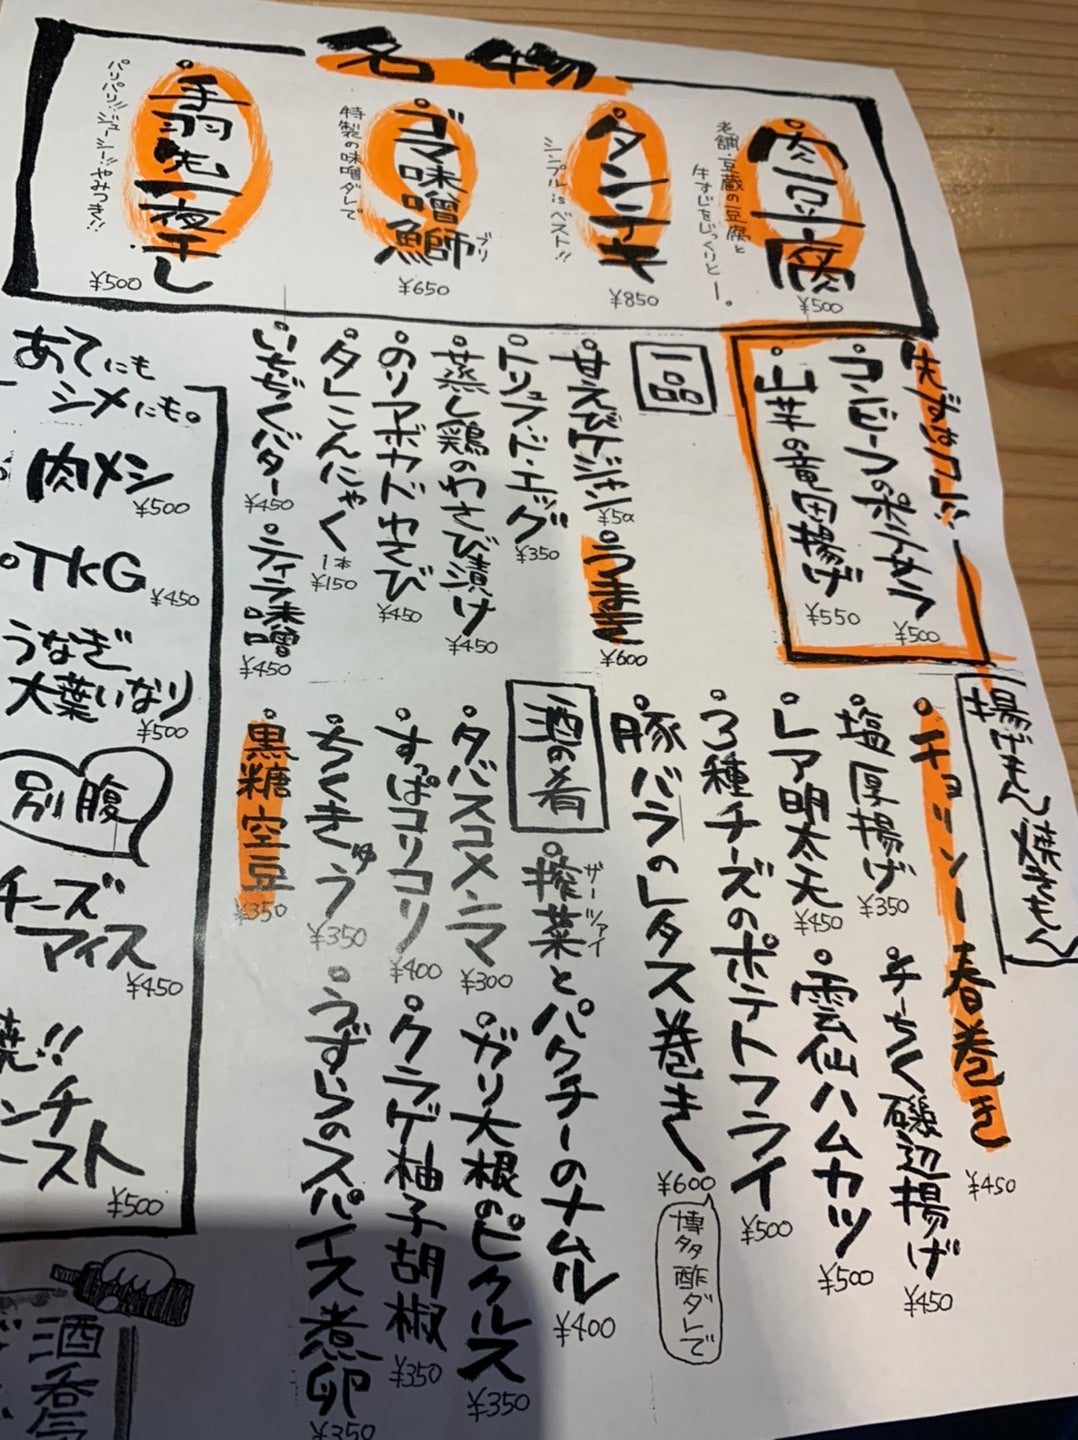 名物
肉豆腐
老舗・豆蔵の豆腐と
牛すじをじっくりとー。
¥500
タンテキ
シンプル is ベスト!!
¥850
ゴマ味噌鰤
ブリ
特製の味噌ダレで
¥650
手羽先一夜干し
パリパリ!!ジューシー!!やみつき!!
¥500
先ずはコレ!!
コンビーフのポテサラ
¥500
山芋の竜田揚げ
¥550
一品
甘えびケジャン
うまき
¥600
トリュフ・ド・エッグ
¥350
蒸し鶏のわさび漬け
¥450
のりアボカドわさび
¥450
タレこんにゃく
1本
¥150
いちじくバター
¥450
ティラ味噌
¥450
揚げもん 焼きもん
チョリソー春巻き
¥450
塩厚揚げ
¥350
チーちく磯辺揚げ
¥450
レア明太天
¥450
雲仙ハムカツ
¥500
3種チーズのポテトフライ
¥500
豚バラのレタス巻き
¥600
博多酢ダレで
酒の肴
搾菜とパクチーのナムル
ザーツァイ
¥400
タバスコメンマ
¥300
ガリ大根のピクルス
¥350
すっぱコリコリ
¥400
クラゲ柚子胡椒
¥350
ちくきゅう
¥350
うずらのスパイス煮卵
¥350
黒糖空豆
¥350
あてにも
シメにも。
肉メシ
¥500
TKG
¥450
うなぎ
大葉いなり
¥500
別腹
チーズ
アイス
¥450
¥500
酒呑